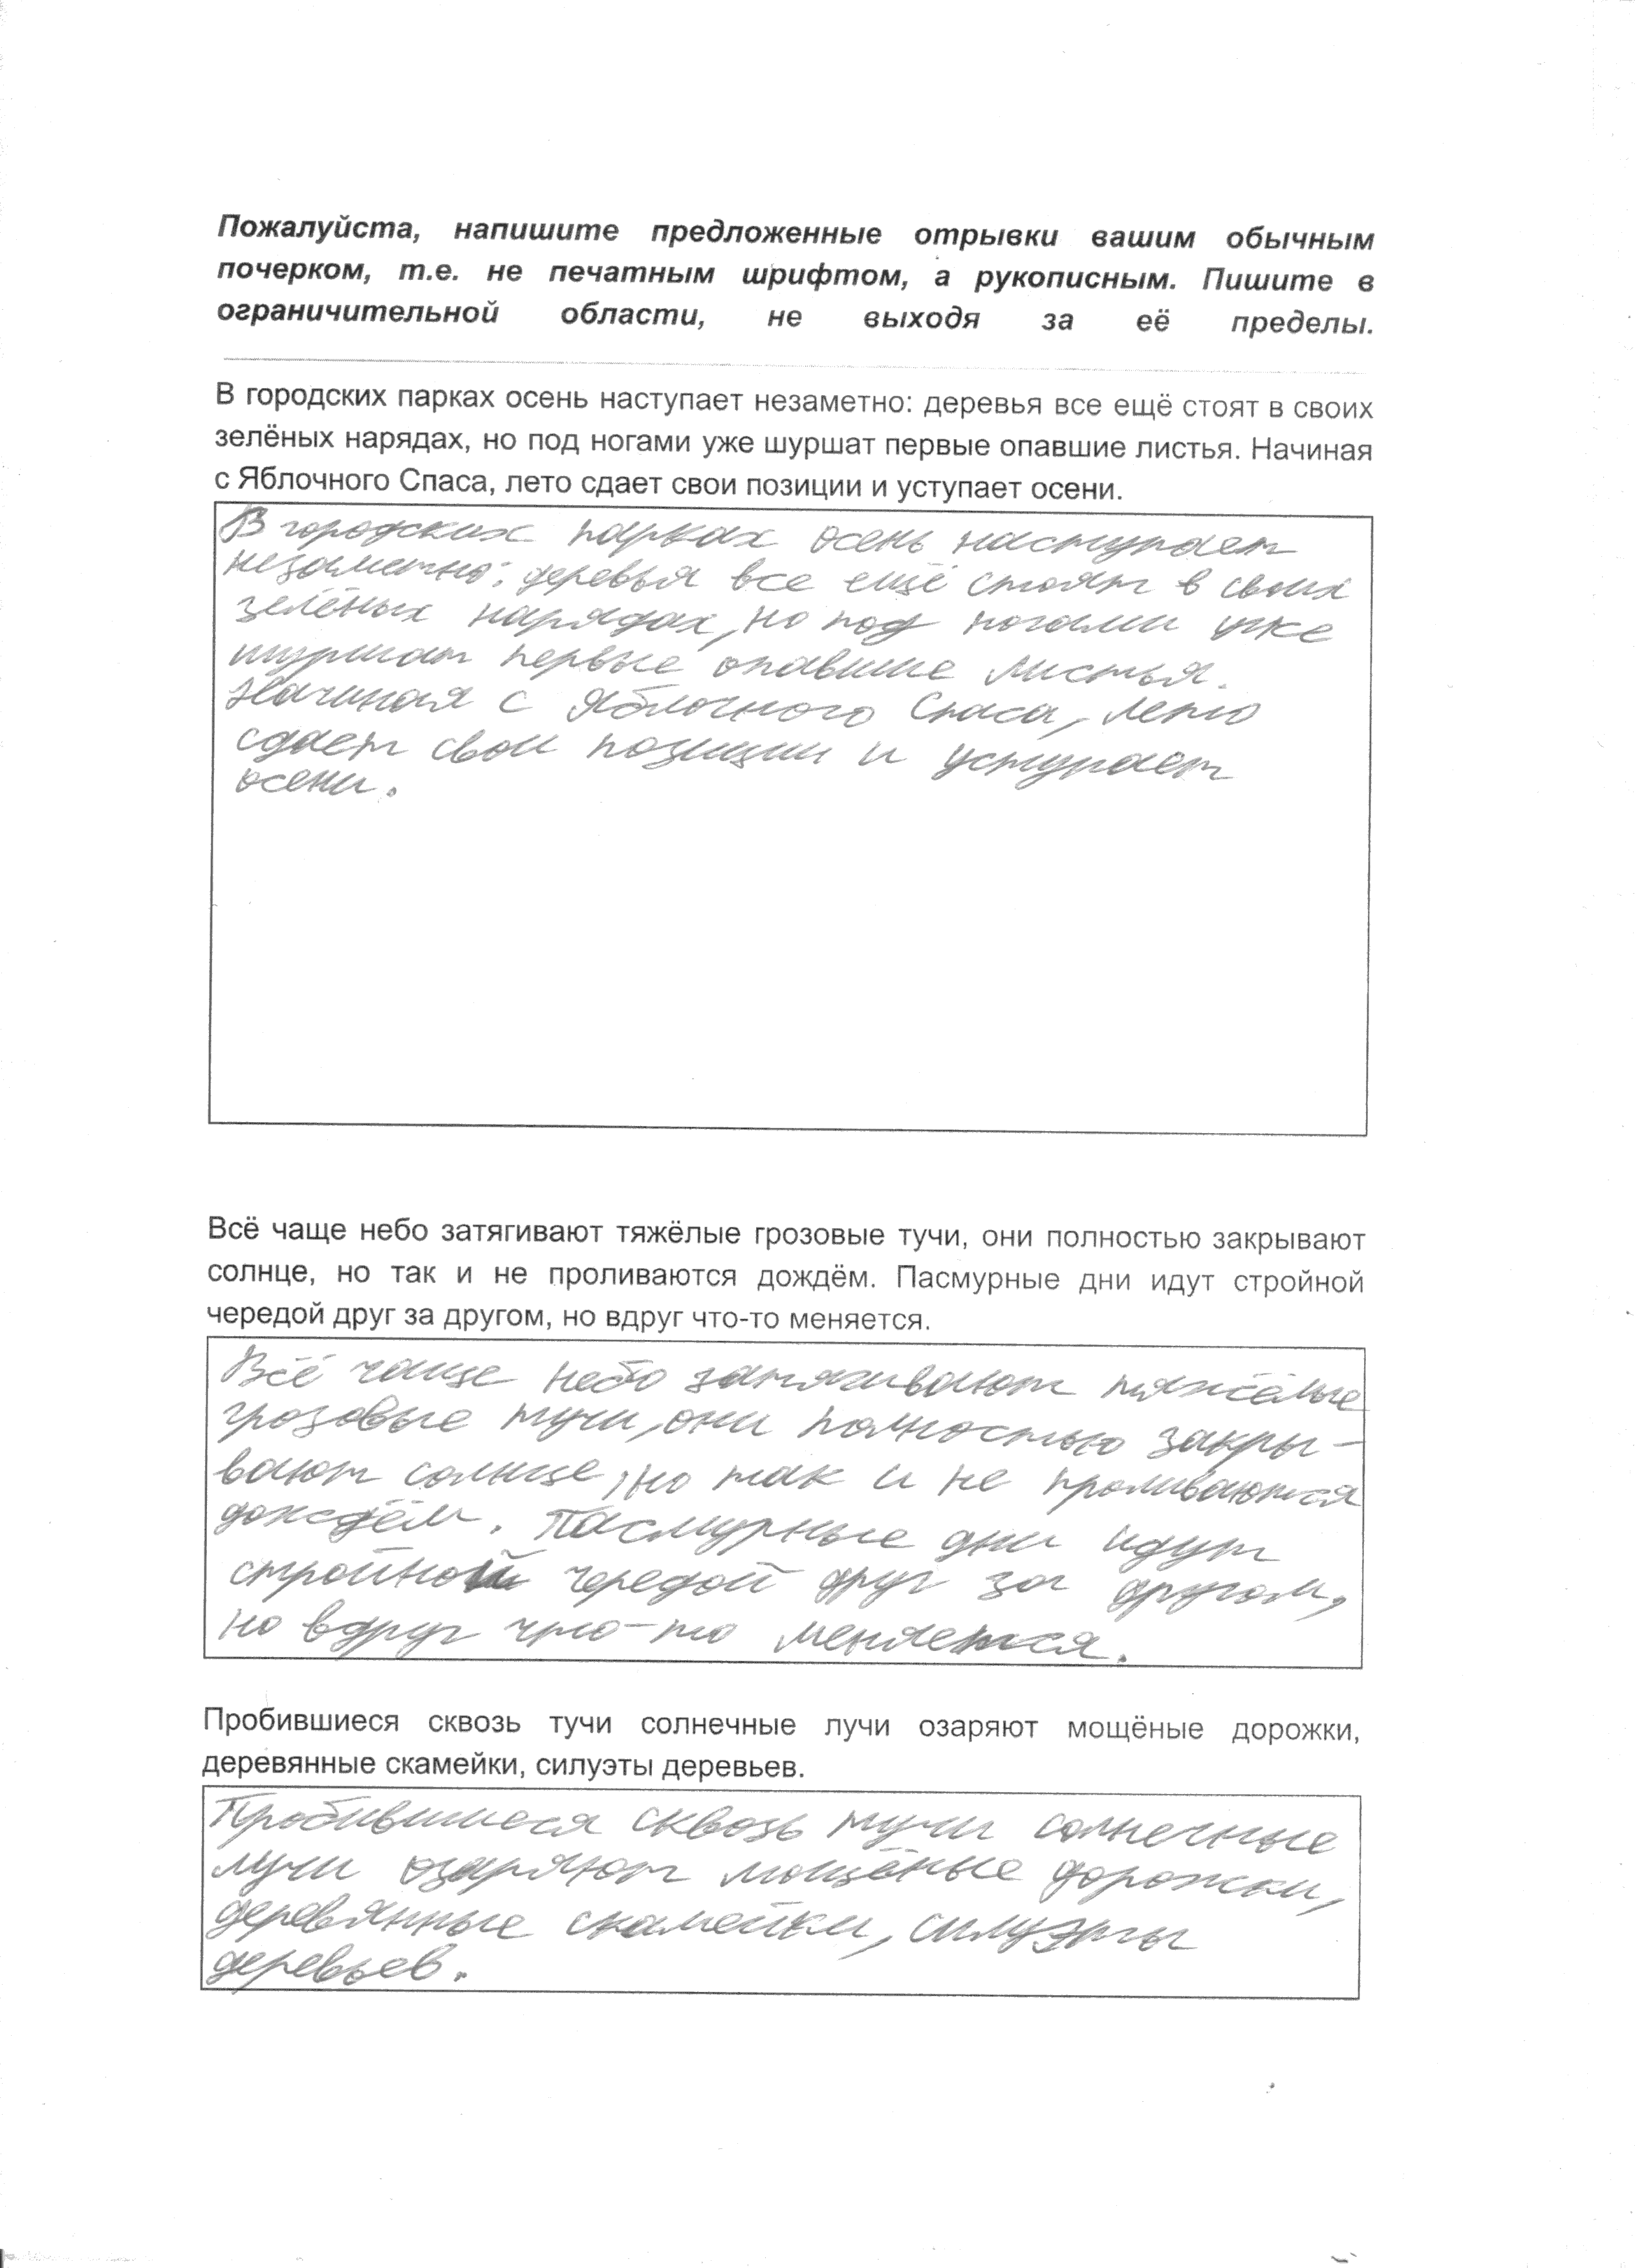 Пожалуйста, напишите предложенные отрывки вашим обычным
почерком, т.е. не печатным шрифтом, а рукописным. Пишите в
ограничительной области, не выходя за её пределы.
В городских парках осень наступает незаметно: деревья все ещё стоят в своих
зелёных нарядах, но под ногами уже шуршат первые опавшие листья. Начиная
с Яблочного Спаса, лето сдает свои позиции и уступает осени.
В городских парках осень наступает
незаметно: деревья все ещё стоят в своих
зелёных нарядах, но под ногами уже
шуршат первые опавшие листья.
Начиная с Яблочного Спаса, лето
сдает свои позиции и уступает
осени.
Всё чаще небо затягивают тяжёлые грозовые тучи, они полностью закрывают
солнце, но так и не проливаются дождём. Пасмурные дни идут стройной
чередой друг за другом, но вдруг что-то меняется.
Всё чаще небо затягивают тяжёлые
грозовые тучи, они полностью закры-
вают солнце, но так и не проливаются
дождём. Пасмурные дни идут
стройной чередой друг за другом,
но вдруг что-то меняется.
Пробившиеся сквозь тучи солнечные лучи озаряют мощёные дорожки,
деревянные скамейки, силуэты деревьев.
Пробившиеся сквозь тучи солнечные
лучи озаряют мощёные дорожки,
деревянные скамейки, силуэты
деревьев.